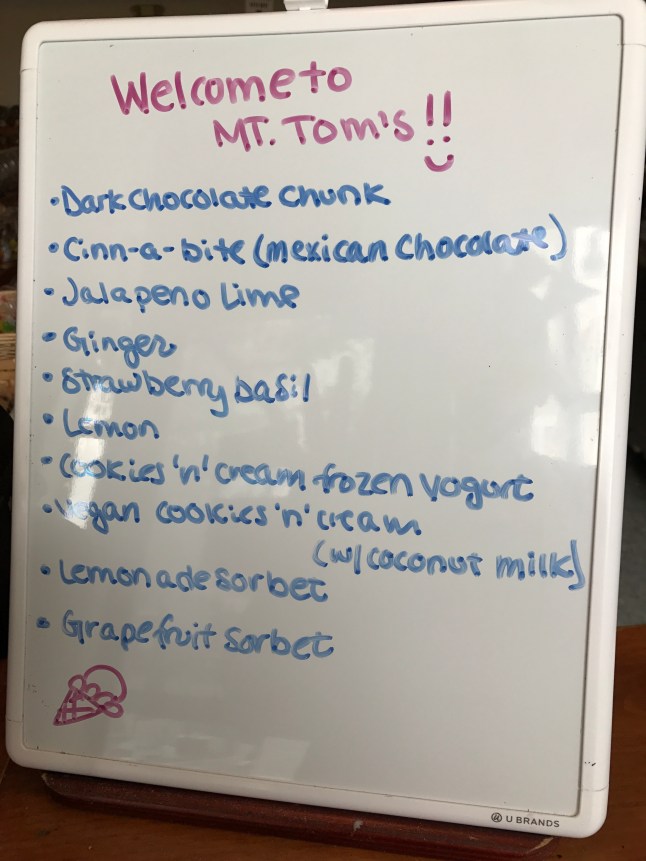 Welcome to
MT. Tom's!!
• Dark Chocolate Chunk
• Cinn-a-bite (mexican Chocolate)
• Jalapeno Lime
• Ginger
• Strawberry basil
• Lemon
• Cookies 'n' cream frozen yogurt
• Vegan cookies 'n' cream
(w/ coconut milk)
• Lemonade sorbet
• Grapefruit sorbet
U BRANDS